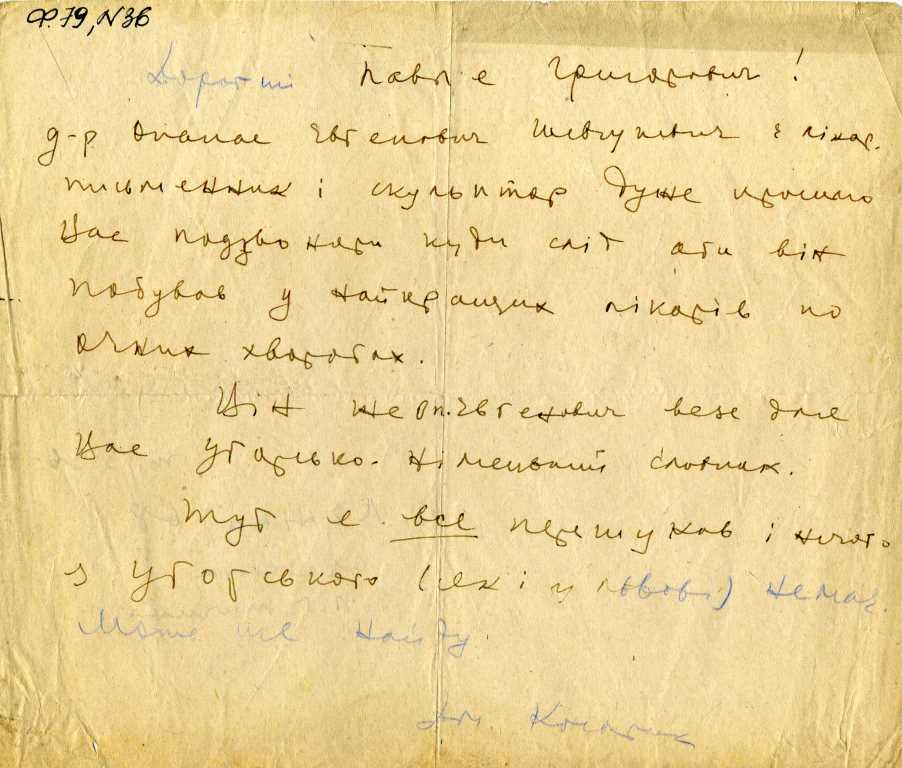 Ф. 79, N 36
Дорогий Павле Григорович!
д-р Опанас Євгенович Шевчукевич є лікар,
письменник і скульптор дуже просимо
Вас подзвонити куди слід аби він
побував у найкращих лікарів по
очних хворобах.
Він же Оп. Євгенович везе для
Вас Угорсько-німецький словник.
Тут я все перешукав і нічого
з Угорського (як і у Львові) немає.
Може ще найду.
Дм. Косарик